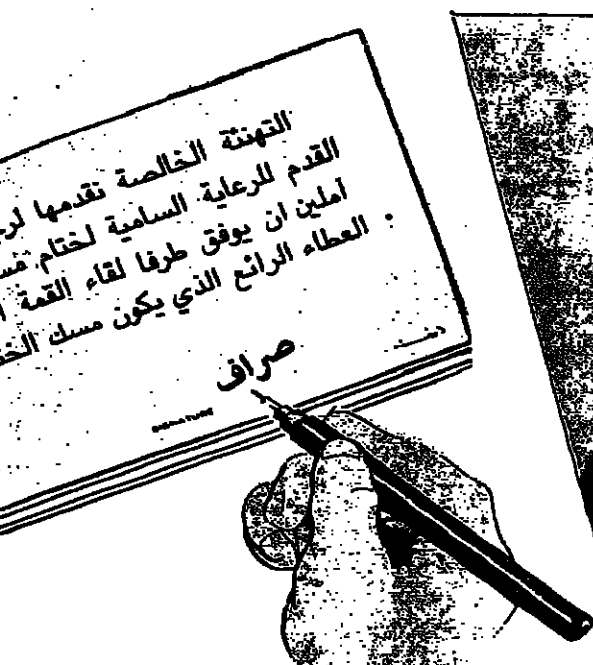 التهنئة الخالصة نقدمها لر
القدم للرعاية السامية لختام مس
آملين ان يوفق طرفا لقاء القمة ا
العطاء الرائع الذي يكون مسك الخت
صراف
SIGNATURE